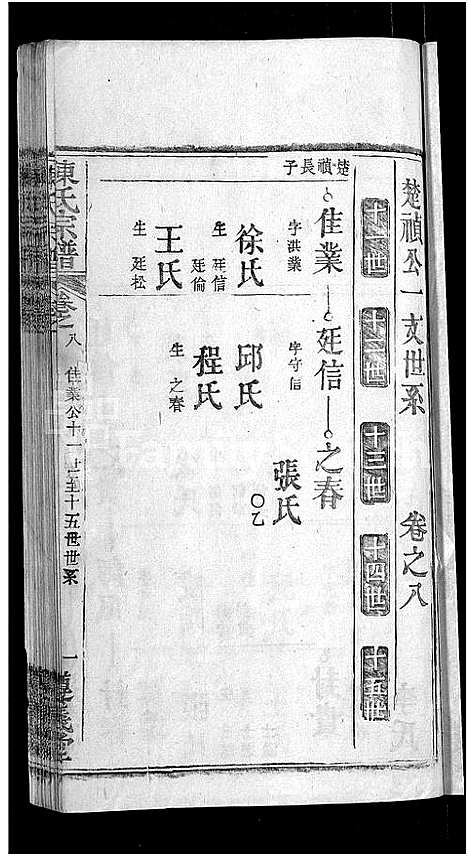 楚禎公一支世系 卷之八
十一世 十二世 十三世 十四世 十五世
楚禎長子
佳業 廷信 之春
字洪業 字守信
張氏 〇乙
徐氏 邱氏
生 廷信 廷倫
程氏
王氏 生 之春
生 廷松
陳氏宗譜 卷之八 佳業公十一世至十五世世系 一